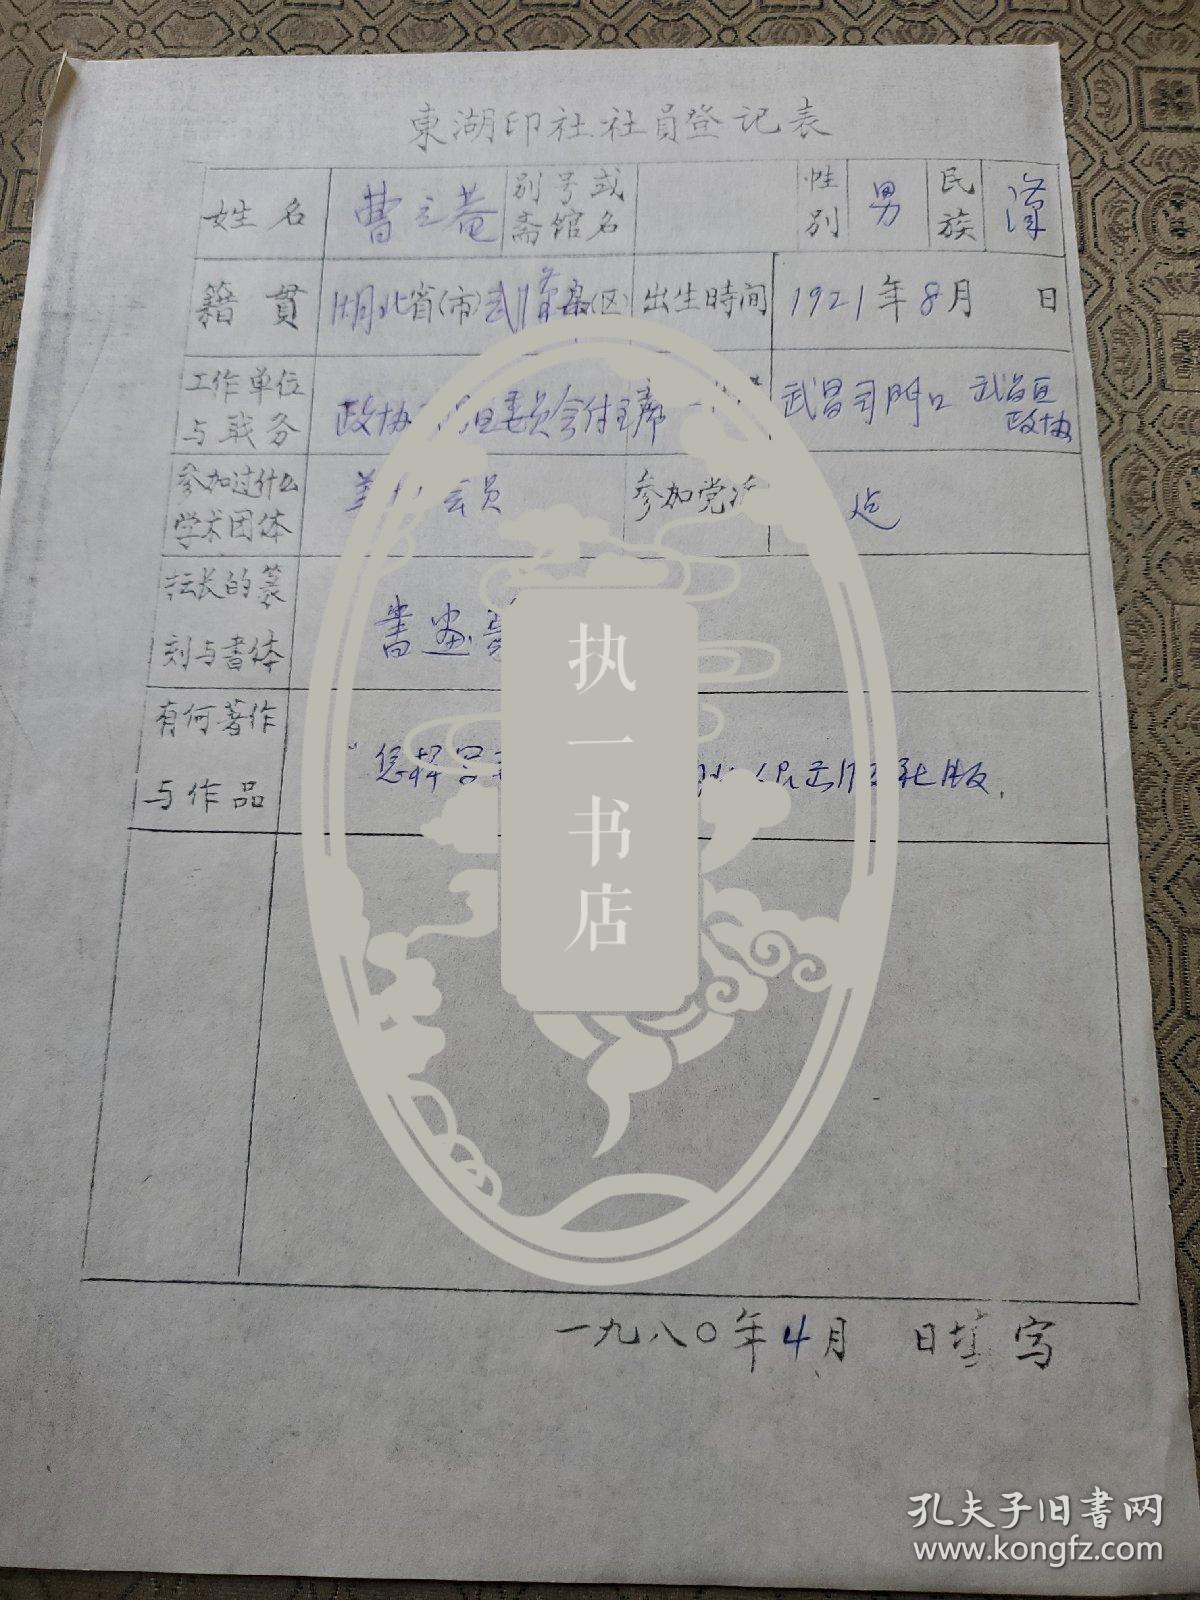 東湖印社社員登记表
姓名 曹立菴 别号或斋馆名 性别 男 民族 汉
籍贯 湖北省(市)武汉县(区) 出生时间 1921年8月 日
工作单位与职务 政协 区委员会付主席 武昌司門口 武昌区政协
参加过什么学术团体 会员 参加党派
擅长的篆刻与书体 書画
有何著作与作品 怎样 人民 版.
一九八〇年4月 日填写
执一书店
孔夫子旧书网
www.kongfz.com